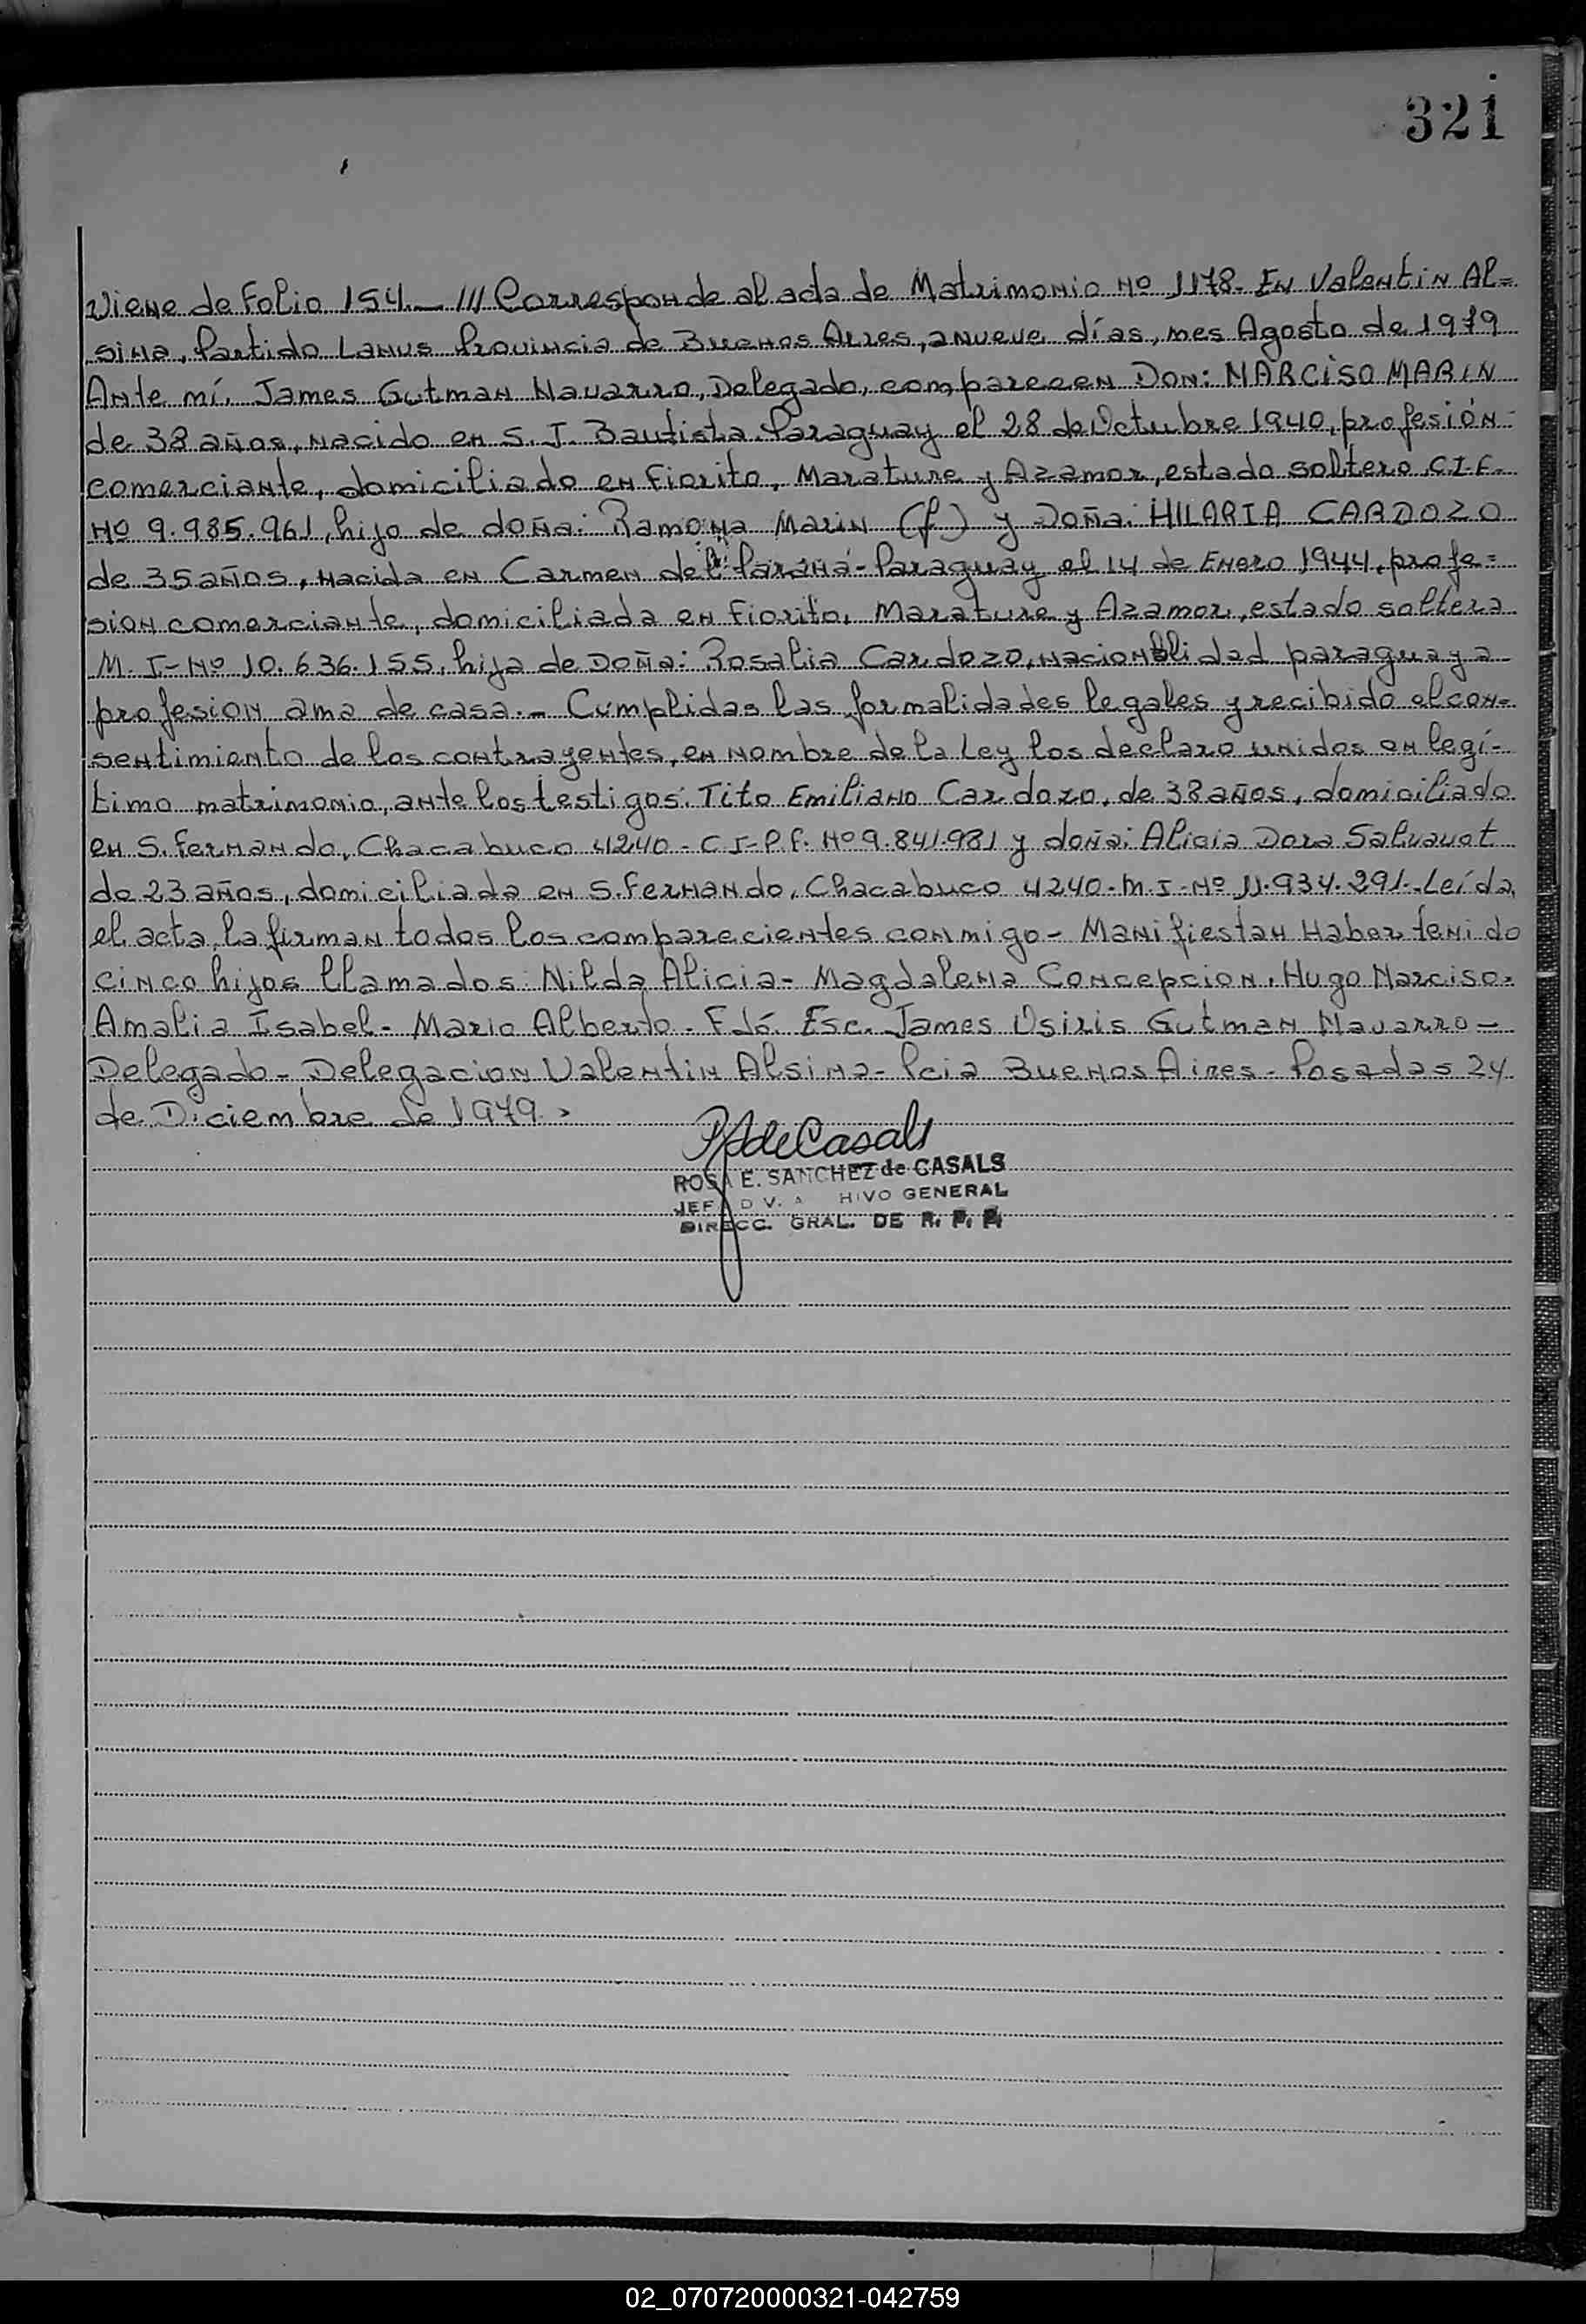 321
Viene de Folio 154.- /// Corresponde al acta de Matrimonio Nº 1178- En Valentin Al=
sina, Partido Lanus Provincia de Buenos Aires, a nueve días, mes Agosto de 1979
Ante mí, James Gutman Navarro, Delegado, comparecen Don: NARCISO MARIN
de 38 años, nacido en S. J. Bautista Paraguay el 28 de Octubre 1940, profesión
comerciante, domiciliado en Fiorito, Marature y Azamor, estado soltero C.I.F.
Nº 9.985.961, hijo de doña: Ramona Marin (f) y Doña: HILARIA CARDOZO
de 35 años, nacida en Carmen del Paraná-Paraguay el 14 de Enero 1944, profe=
sion comerciante, domiciliada en Fiorito, Marature y Azamor, estado soltera
M. I- Nº 10.636.155, hija de Doña: Rosalia Cardozo, nacionalidad paraguaya
profesion ama de casa.- Cumplidas las formalidades legales y recibido el con=
sentimiento de los contrayentes, en nombre de la Ley los declaro unidos en legí-
timo matrimonio, ante los testigos: Tito Emiliano Cardozo, de 38 años, domiciliado
en S. Fernando, Chacabuco 4240 - C I- P.F. Nº 9.841.981 y doña: Alicia Dora
de 23 años, domiciliada en S. Fernando, Chacabuco 4240- M. I- Nº 11.934.291- Leída
el acta, la firman todos los comparecientes conmigo - Manifiestan Haber tenido
cinco hijos llamados: Nilda Alicia- Magdalena Concepcion, Hugo Narciso-
Amalia Isabel- Mario Alberto- Fdó. Esc. James Osiris Gutman Navarro-
Delegado- Delegacion Valentin Alsina- Pcia Buenos Aires- Posadas 24
de Diciembre de 1979.-
de Casals
ROSA E. SANCHEZ de CASALS
JEF D V. A HIVO GENERAL
DIRECC. GRAL. DE R. P. P.
02_070720000321-042759